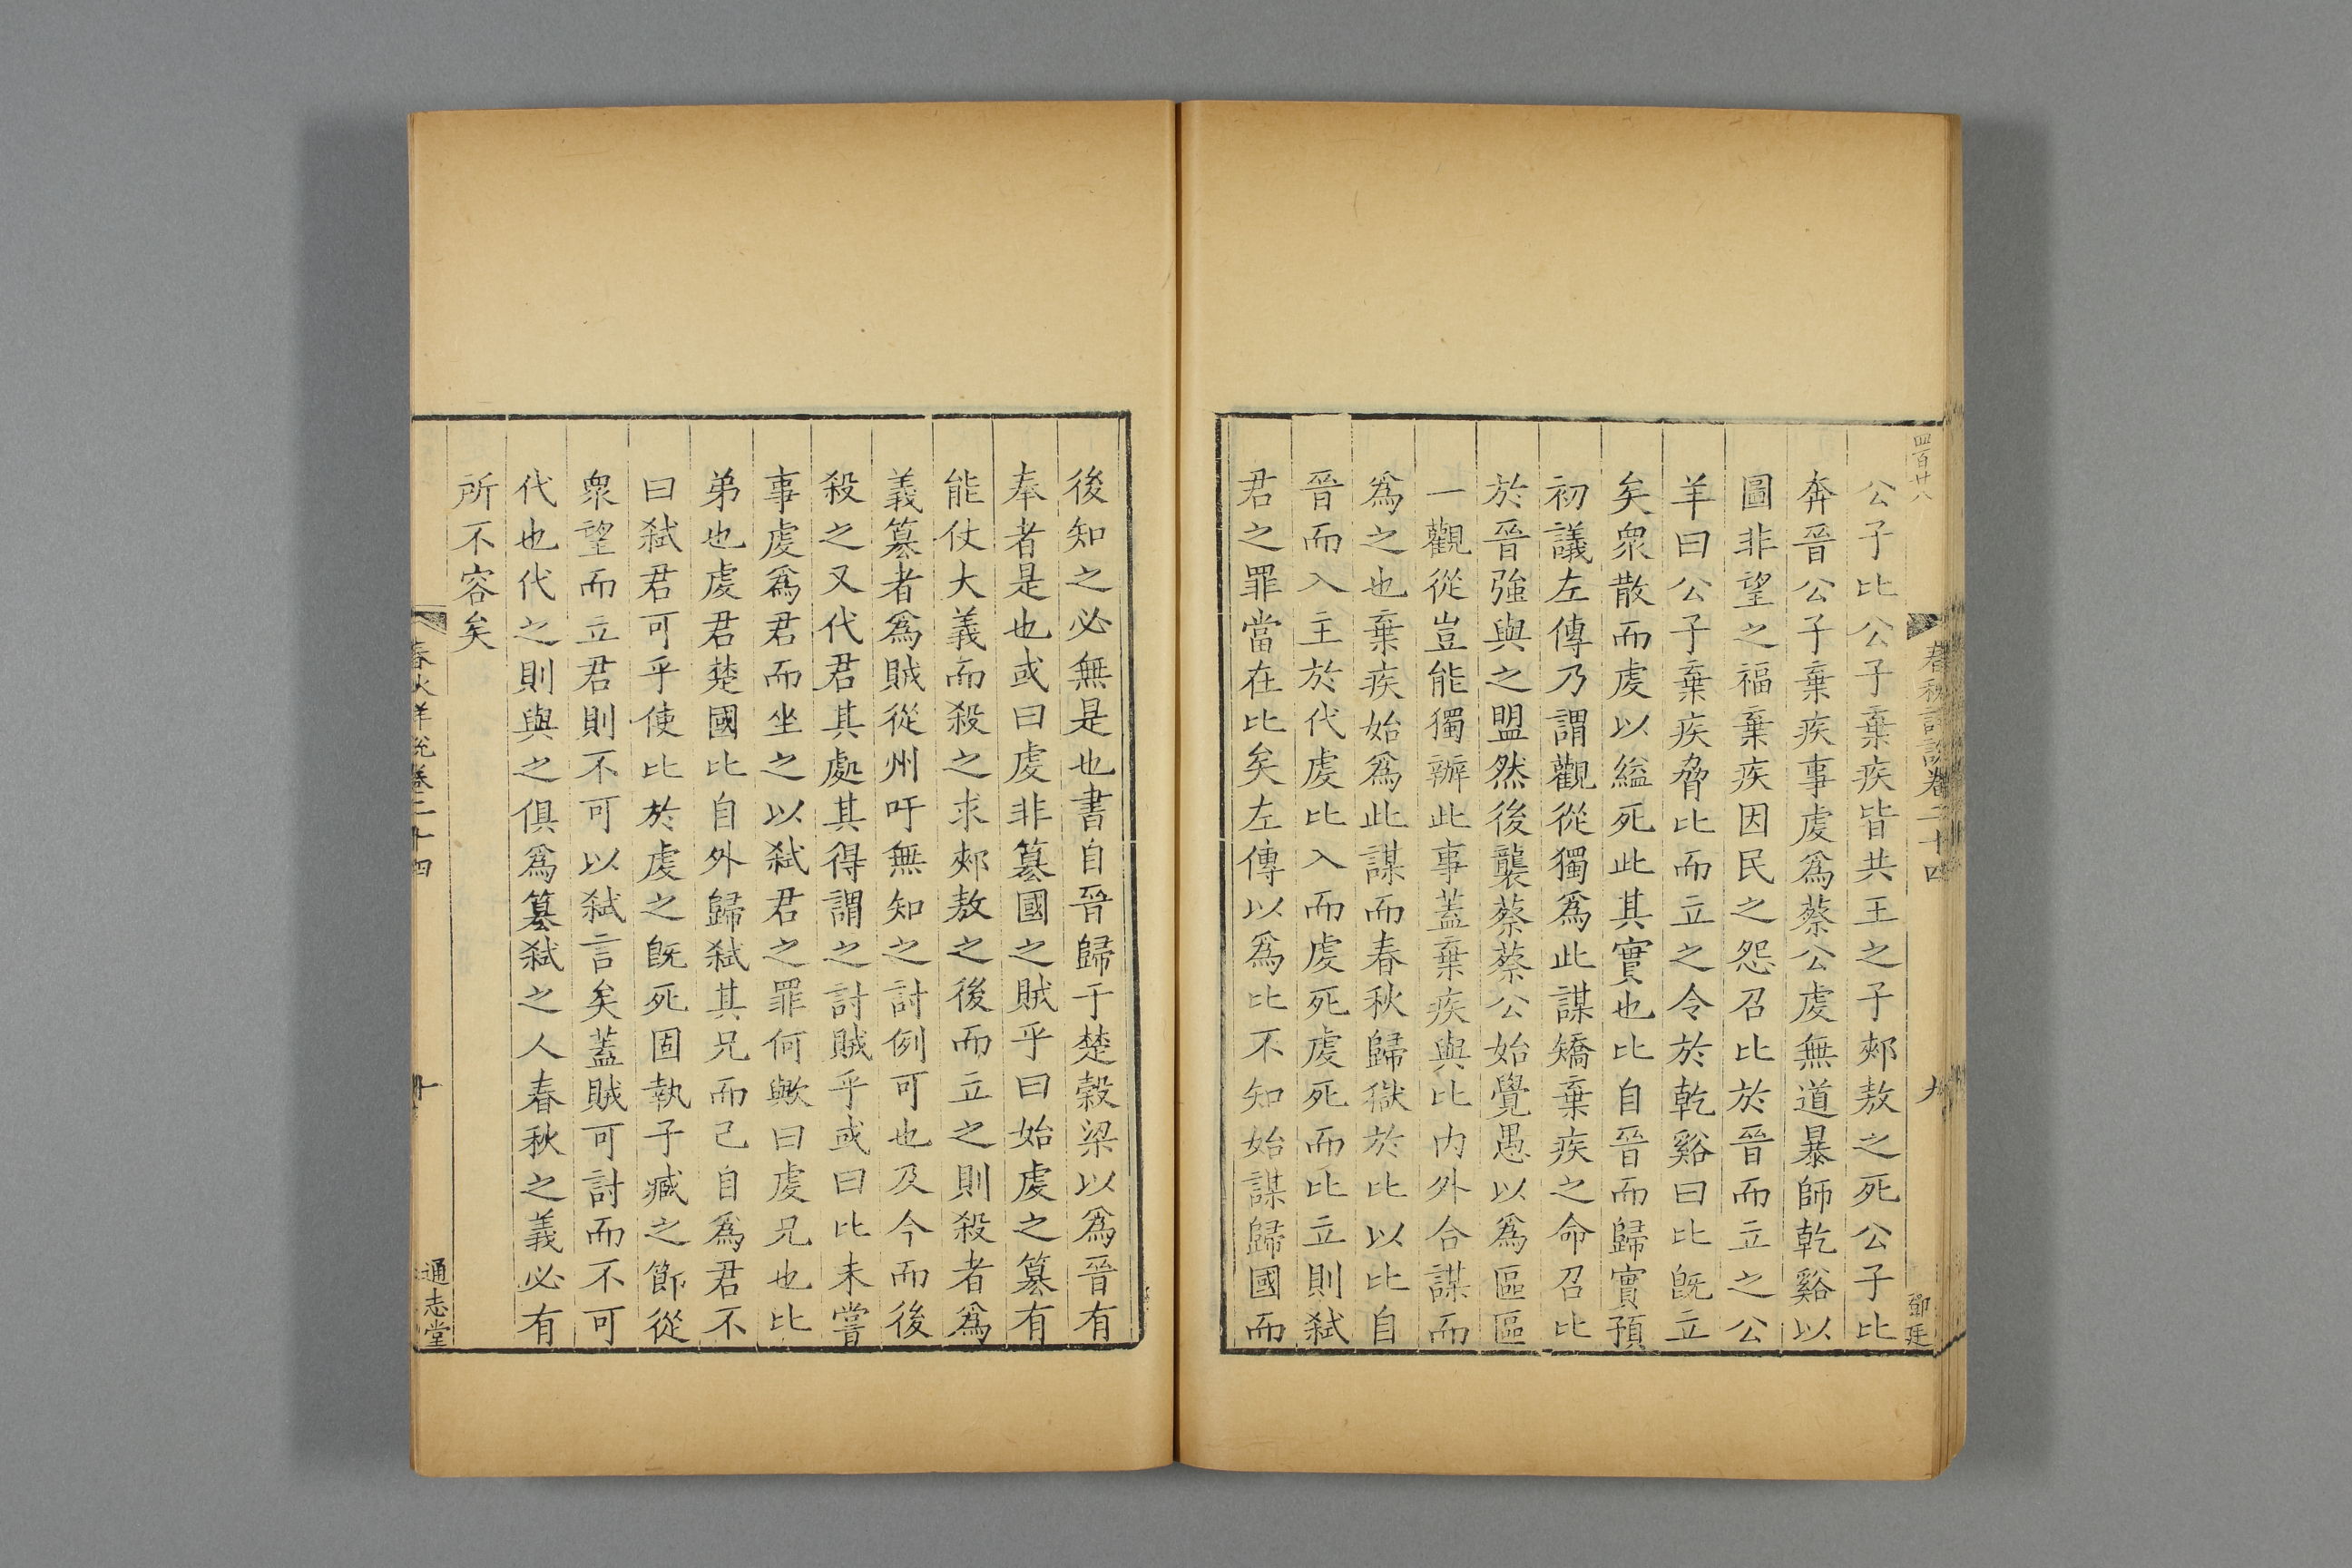 四百廿八
春秋詳說卷二十四
九
鄧珽
公子比公子棄疾皆共王之子郟敖之死公子比
奔晉公子棄疾事虔爲蔡公虔無道暴師乾谿以
圖非望之福棄疾因民之怨召比於晉而立之公
羊曰公子棄疾脅比而立之令於乾谿曰比旣立
矣衆散而虔以縊死此其實也比自晉而歸實預
初議左傳乃謂觀從獨爲此謀矯棄疾之命召比
於晉強與之盟然後襲蔡蔡公始覺愚以爲區區
一觀從豈能獨辦此事蓋棄疾與比内外合謀而
爲之也棄疾始爲此謀而春秋歸獄於比以比自
晉而入主於代虔比入而虔死虔死而比立則弑
君之罪當在比矣左傳以爲比不知始謀歸國而
後知之必無是也書自晉歸于楚穀梁以爲晉有
奉者是也或曰虔非簒國之賊乎曰始虔之簒有
能仗大義而殺之求郟敖之後而立之則殺者爲
義簒者爲賊從州吁無知之討例可也及今而後
殺之又代君其處其得謂之討賊乎或曰比未嘗
事虔爲君而坐之以弑君之罪何歟曰虔兄也比
弟也虔君楚國比自外歸弑其兄而己自爲君不
曰弑君可乎使比於虔之旣死固執子臧之節從
衆望而立君則不可以弑言矣蓋賊可討而不可
代也代之則與之俱爲簒弑之人春秋之義必有
所不容矣
春秋詳說卷二十四
通志堂